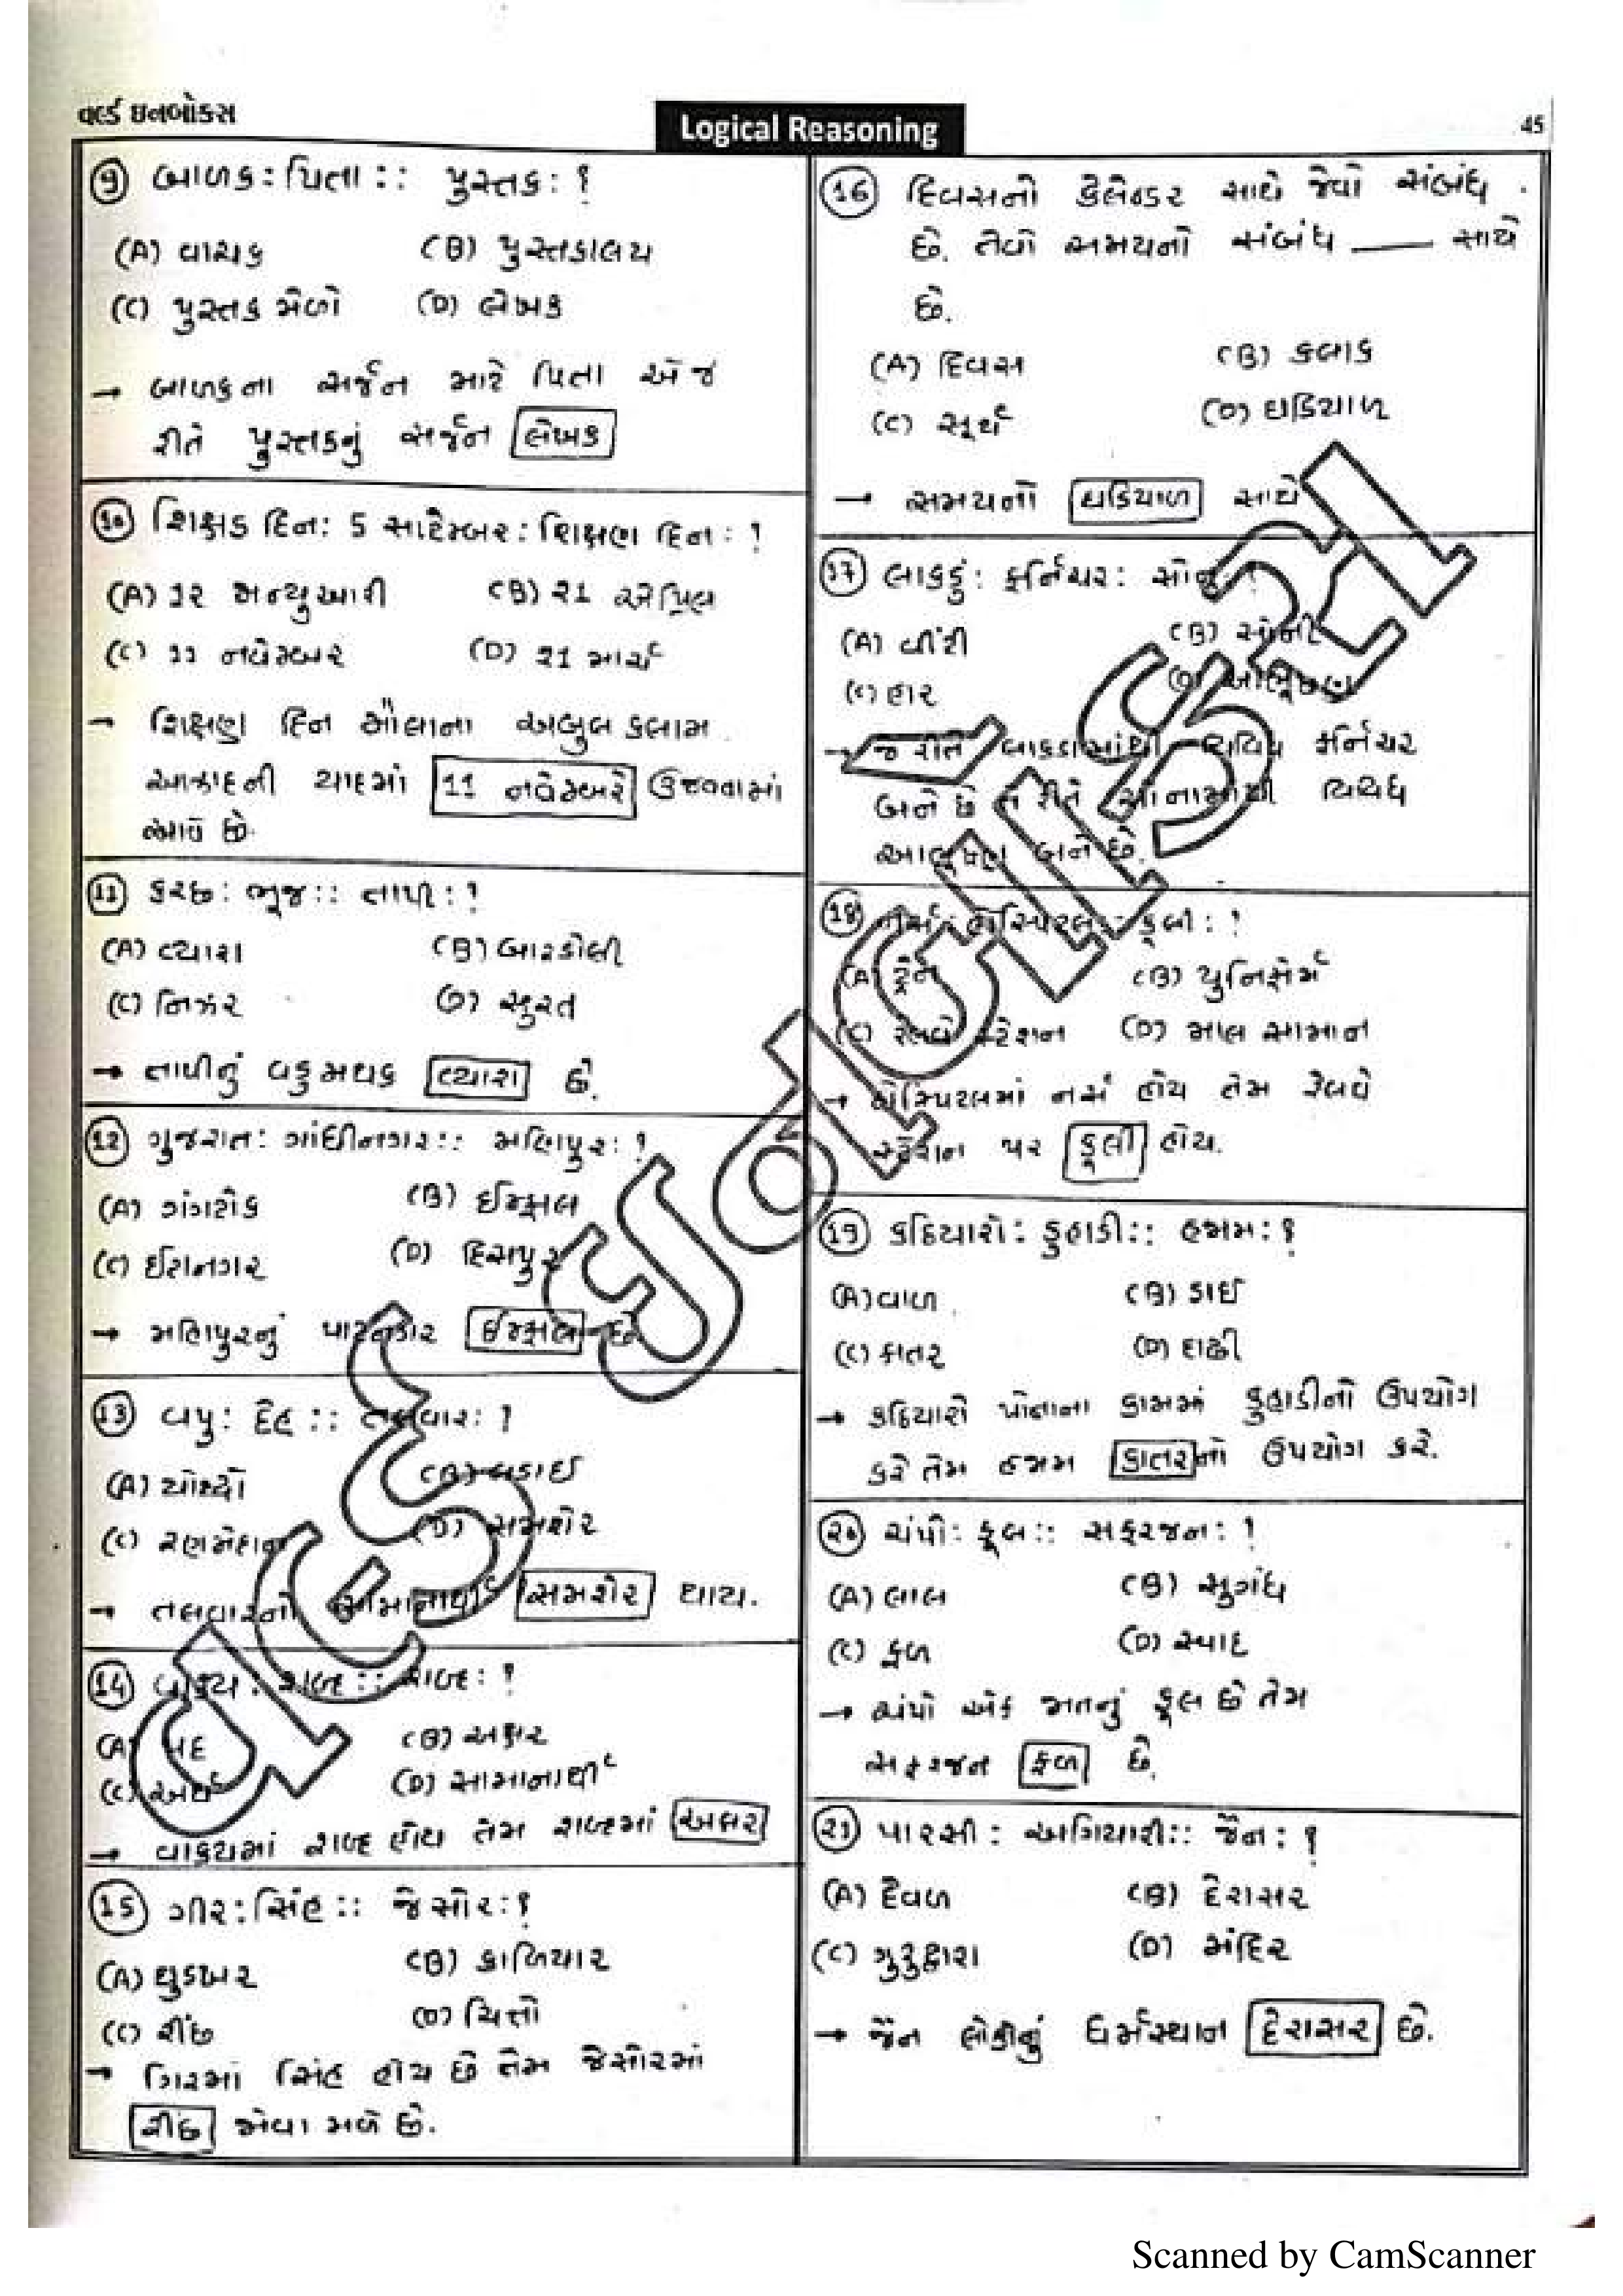 વર્લ્ડ ઇનબોક્સ
Logical Reasoning
45
(9) બાળક : પિતા :: પુસ્તક : ?
(A) વાચક (B) પુસ્તકાલય
(C) પુસ્તક મેળો (D) લેખક
→ બાળકના સર્જન માટે પિતા એજ
રીતે પુસ્તકનું સર્જન લેખક
(10) શિક્ષક દિન : 5 સપ્ટેમ્બર : શિક્ષણ દિન : ?
(A) ૧૨ જાન્યુઆરી (B) ૨૧ એપ્રિલ
(C) ૧૧ નવેમ્બર (D) ૨૧ માર્ચ
→ શિક્ષણ દિન મૌલાના અબુલ કલામ
આઝાદની યાદમાં 11 નવેમ્બરે ઉજવવામાં
આવે છે.
(11) કચ્છ : ભૂજ :: તાપી : ?
(A) વ્યારા (B) બારડોલી
(C) નિઝર (D) સુરત
→ તાપીનું વડુમથક વ્યારા છે.
(12) ગુજરાત : ગાંધીનગર :: મણિપુર : ?
(A) ગંગટોક (B) ઈમ્ફાલ
(C) ઈટાનગર (D) દિસપુર
→ મણિપુરનું પાટનગર ઈમ્ફાલ છે
(13) વપુ : દેહ :: તલવાર : ?
(A) યોધ્ધો (B) લડાઈ
(C) રણમેદાન (D) સમશેર
→ તલવારનો સમાનાર્થી સમશેર થાય.
(14) વાક્ય : શબ્દ :: શબ્દ : ?
(A) પદ (B) અક્ષર
(C) અર્થ (D) સામાનાર્થી
→ વાક્યમાં શબ્દ હોય તેમ શબ્દમાં અક્ષર
(15) ગીર : સિંહ :: જેસોર : ?
(A) ઘુડખર (B) કાળિયાર
(C) રીંછ (D) ચિત્તો
→ ગિરમાં સિંહ હોય છે તેમ જેસોરમાં
રીંછ જોવા મળે છે.
(16) દિવસનો કેલેન્ડર સાથે જેવો સંબંધ
છે. તેવો સમયનો સંબંધ ____ સાથે
છે.
(A) દિવસ (B) કલાક
(C) સૂર્ય (D) ઘડિયાળ
→ સમયનો ઘડિયાળ સાથે
(17) લાકડું : ફર્નિચર : સોનું : ?
(A) વીંટી (B) સોની
(C) હાર (D) આભૂષણ
→ જે રીતે લાકડામાંથી વિવિધ ફર્નિચર
બને છે તે રીતે સોનામાંથી વિવિધ
આભૂષણ બને છે.
(18) નર્સ : હોસ્પિટલ :: કૂલી : ?
(A) ટ્રેન (B) યુનિફોર્મ
(C) રેલવે સ્ટેશન (D) માલ સામાન
→ હોસ્પિટલમાં નર્સ હોય તેમ રેલવે
સ્ટેશન પર કૂલી હોય.
(19) કઠિયારો : કુહાડી :: હજામ : ?
(A) વાળ (B) ડાઈ
(C) કાતર (D) દાઢી
→ કઠિયારો પોતાના કામમાં કુહાડીનો ઉપયોગ
કરે તેમ હજામ કાતરનો ઉપયોગ કરે.
(20) ચંપો : ફૂલ :: સફરજન : ?
(A) લાલ (B) સુગંધ
(C) ફળ (D) સ્વાદ
→ ચંપો એક જાતનું ફૂલ છે તેમ
સફરજન ફળ છે.
(21) પારસી : અગિયારી :: જૈન : ?
(A) દેવળ (B) દેરાસર
(C) ગુરુદ્વારા (D) મંદિર
→ જૈન લોકોનું ધર્મસ્થાન દેરાસર છે.
Scanned by CamScanner